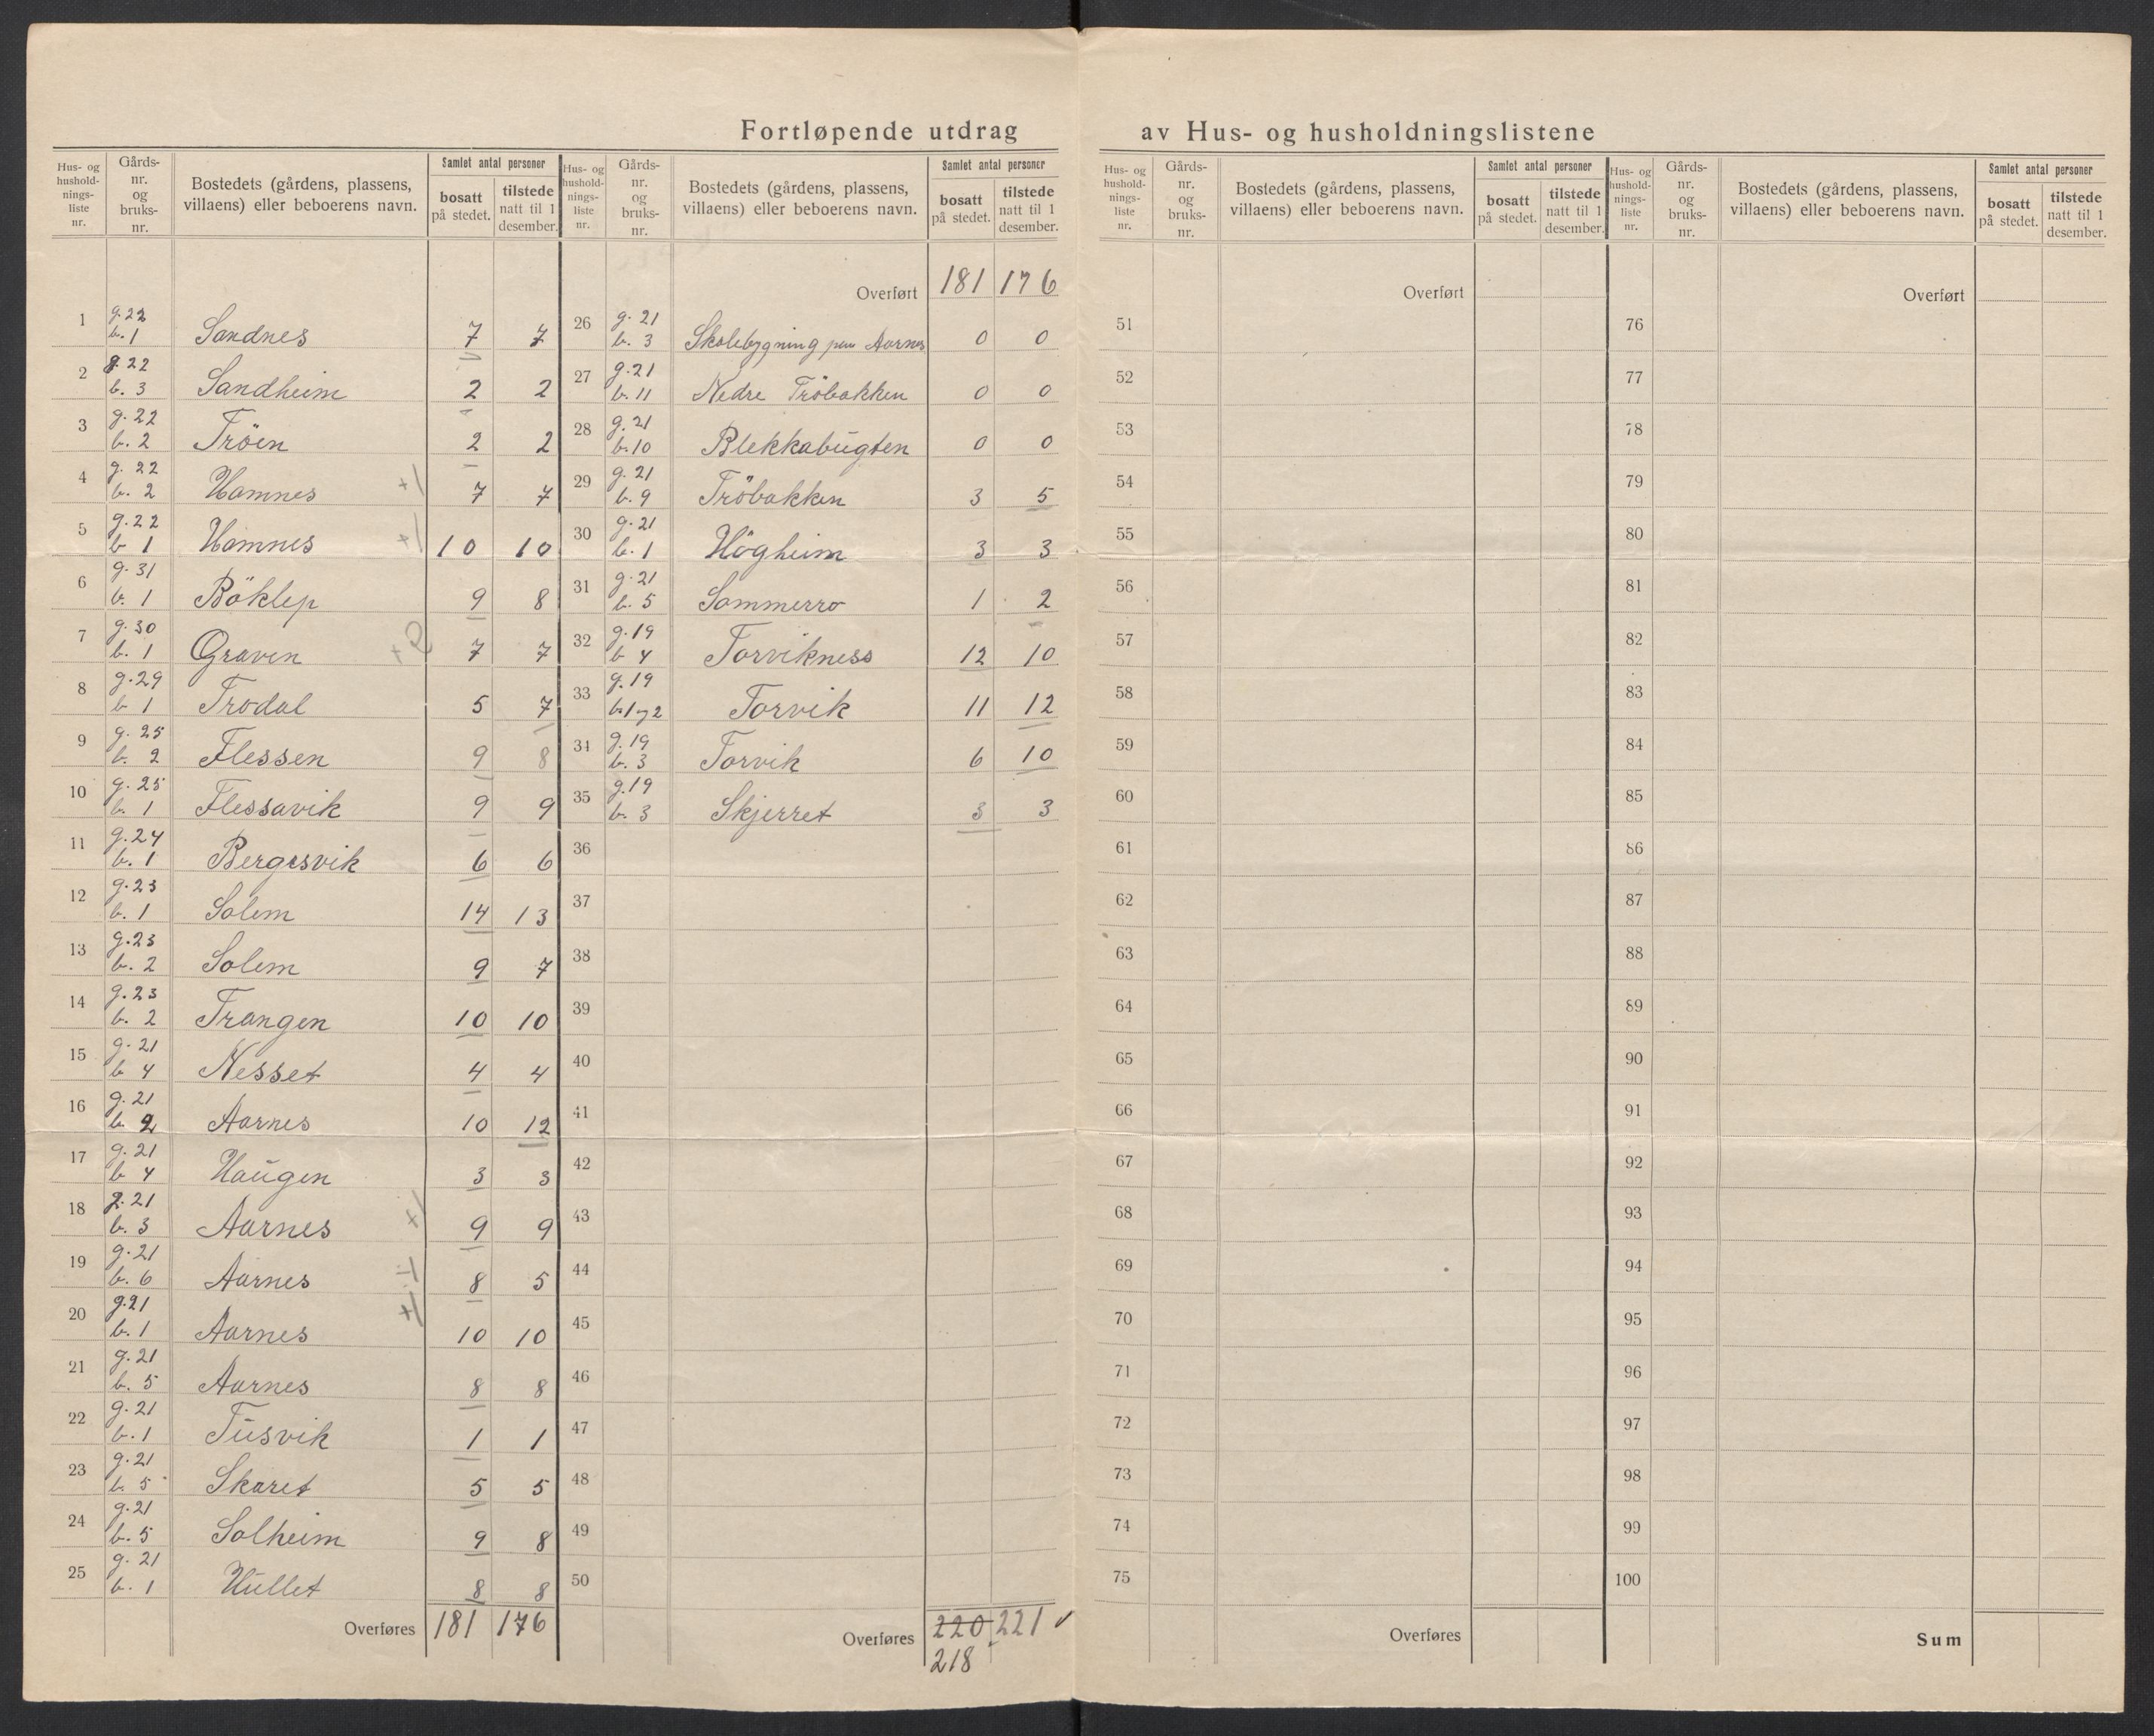 Fortløpende utdrag av Hus- og husholdningslistene
Hus- og husholdningsliste nr. Gårds-nr. og bruks-nr. Bostedets (gårdens, plassens, villaens) eller beboerens navn. Samlet antal personer bosatt på stedet. tilstede natt til 1 desember.
1 g. 22 b. 1 Sandnes 7 7
2 g. 22 b. 3 Sandheim 2 2
3 g. 22 b. 2 Tröen 2 2
4 g. 22 b. 2 Hamnes +1 7 7
5 g. 22 b 1 Hamnes +1 10 10
6 g. 31 b. 1 Böklep 9 8
7 g. 30 b. 1 Graven +2 7 7
8 g. 29 b 1 Trodal 5 7
9 g. 25 b. 2 Flessen 9 8
10 g. 25 b. 1 Flessavik 9 9
11 g. 24 b. 1 Bergesvik 6 6
12 g. 23 b. 1 Solem 14 13
13 g. 23 b. 2 Solem 9 7
14 g. 23 b. 2 Trangen 10 10
15 g. 21 b 4 Nesset 4 4
16 g. 21 b. 2 Aarnes 10 12
17 g. 21 b 4 Haugen 3 3
18 g. 21 b. 3 Aarnes +1 9 9
19 g. 21 b. 6 Aarnes 8 5
20 g. 21 b. 1 Aarnes 10 10
21 g. 21 b. 5 Aarnes 8 8
22 g. 21 b. 1 Tusvik 1 1
23 g. 21 b. 5 Skaret 5 5
24 g. 21 b. 5 Solheim 9 8
25 g. 21 b. 1 Hullet 8 8
Overføres 181 176
Hus- og husholdningsliste nr. Gårds-nr. og bruks-nr. Bostedets (gårdens, plassens, villaens) eller beboerens navn. Samlet antal personer bosatt på stedet. tilstede natt til 1 desember.
Overført 181 176
26 g. 21 b. 3 Skolebygning paa Aarnes 0 0
27 g. 21 b. 11 Nedre Tröbakken 0 0
28 g. 21 b. 10 Blekkabugten 0 0
29 g. 21 b. 9 Tröbakken 3 5
30 g. 21 b. 1 Högheim 3 3
31 g. 21 b. 5 Sommerro 1 2
32 g. 19 b 4 Torvikness 12 10
33 g. 19 b. 1 og 2 Torvik 11 12
34 g. 19 b. 3 Torvik 6 10
35 g. 19 b. 3 Skjerret 3 3
36
37
38
39
40
41
42
43
44
45
46
47
48
49
50
Overføres 220 221
218
Hus- og husholdningsliste nr. Gårds-nr. og bruks-nr. Bostedets (gårdens, plassens, villaens) eller beboerens navn. Samlet antal personer bosatt på stedet. tilstede natt til 1 desember.
Overført
51
52
53
54
55
56
57
58
59
60
61
62
63
64
65
66
67
68
69
70
71
72
73
74
75
Overføres
Hus- og husholdningsliste nr. Gårds-nr. og bruks-nr. Bostedets (gårdens, plassens, villaens) eller beboerens navn. Samlet antal personer bosatt på stedet. tilstede natt til 1 desember.
Overført
76
77
78
79
80
81
82
83
84
85
86
87
88
89
90
91
92
93
94
95
96
97
98
99
100
Sum